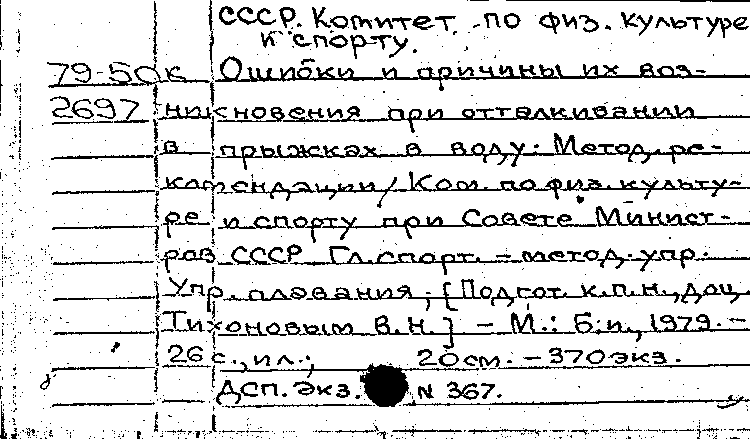 СССР. Комитет по физ. культуре
и спорту.
79-50к Ошибки и причины их воз-
2697 никновения при отталкивании
в прыжках в воду: Метод. ре-
комендации / Ком. по физ. культу-
ре и спорту при Совете Минист-
ров СССР. Гл. спорт. - метод. упр.
Упр. плавания; [Подгот. к.п.н., доц.
Тихоновым В.Н.] - М.: Б.и., 1979. -
26 с., ил.; 20 см. - 370 экз.
ДСП. Экз. N 367.